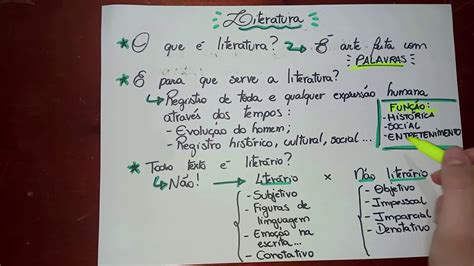 Literatura
* O que é literatura? → É arte feita com
PALAVRAS
* E para que serve a literatura?
↳ Registro de toda e qualquer expressão humana
através dos tempos:
- Evolução do homem;
- Registro histórico, cultural, social...
FUNÇÃO:
- HISTÓRICA
- SOCIAL
- ENTRETENIMENTO
* Todo texto é literário?
↳ Não! → Literário × Não literário
- Subjetivo
- Figuras de
linguagem
- Emoção na
escrita...
- Conotativo
- Objetivo
- Impessoal
- Imparcial
- Denotativo